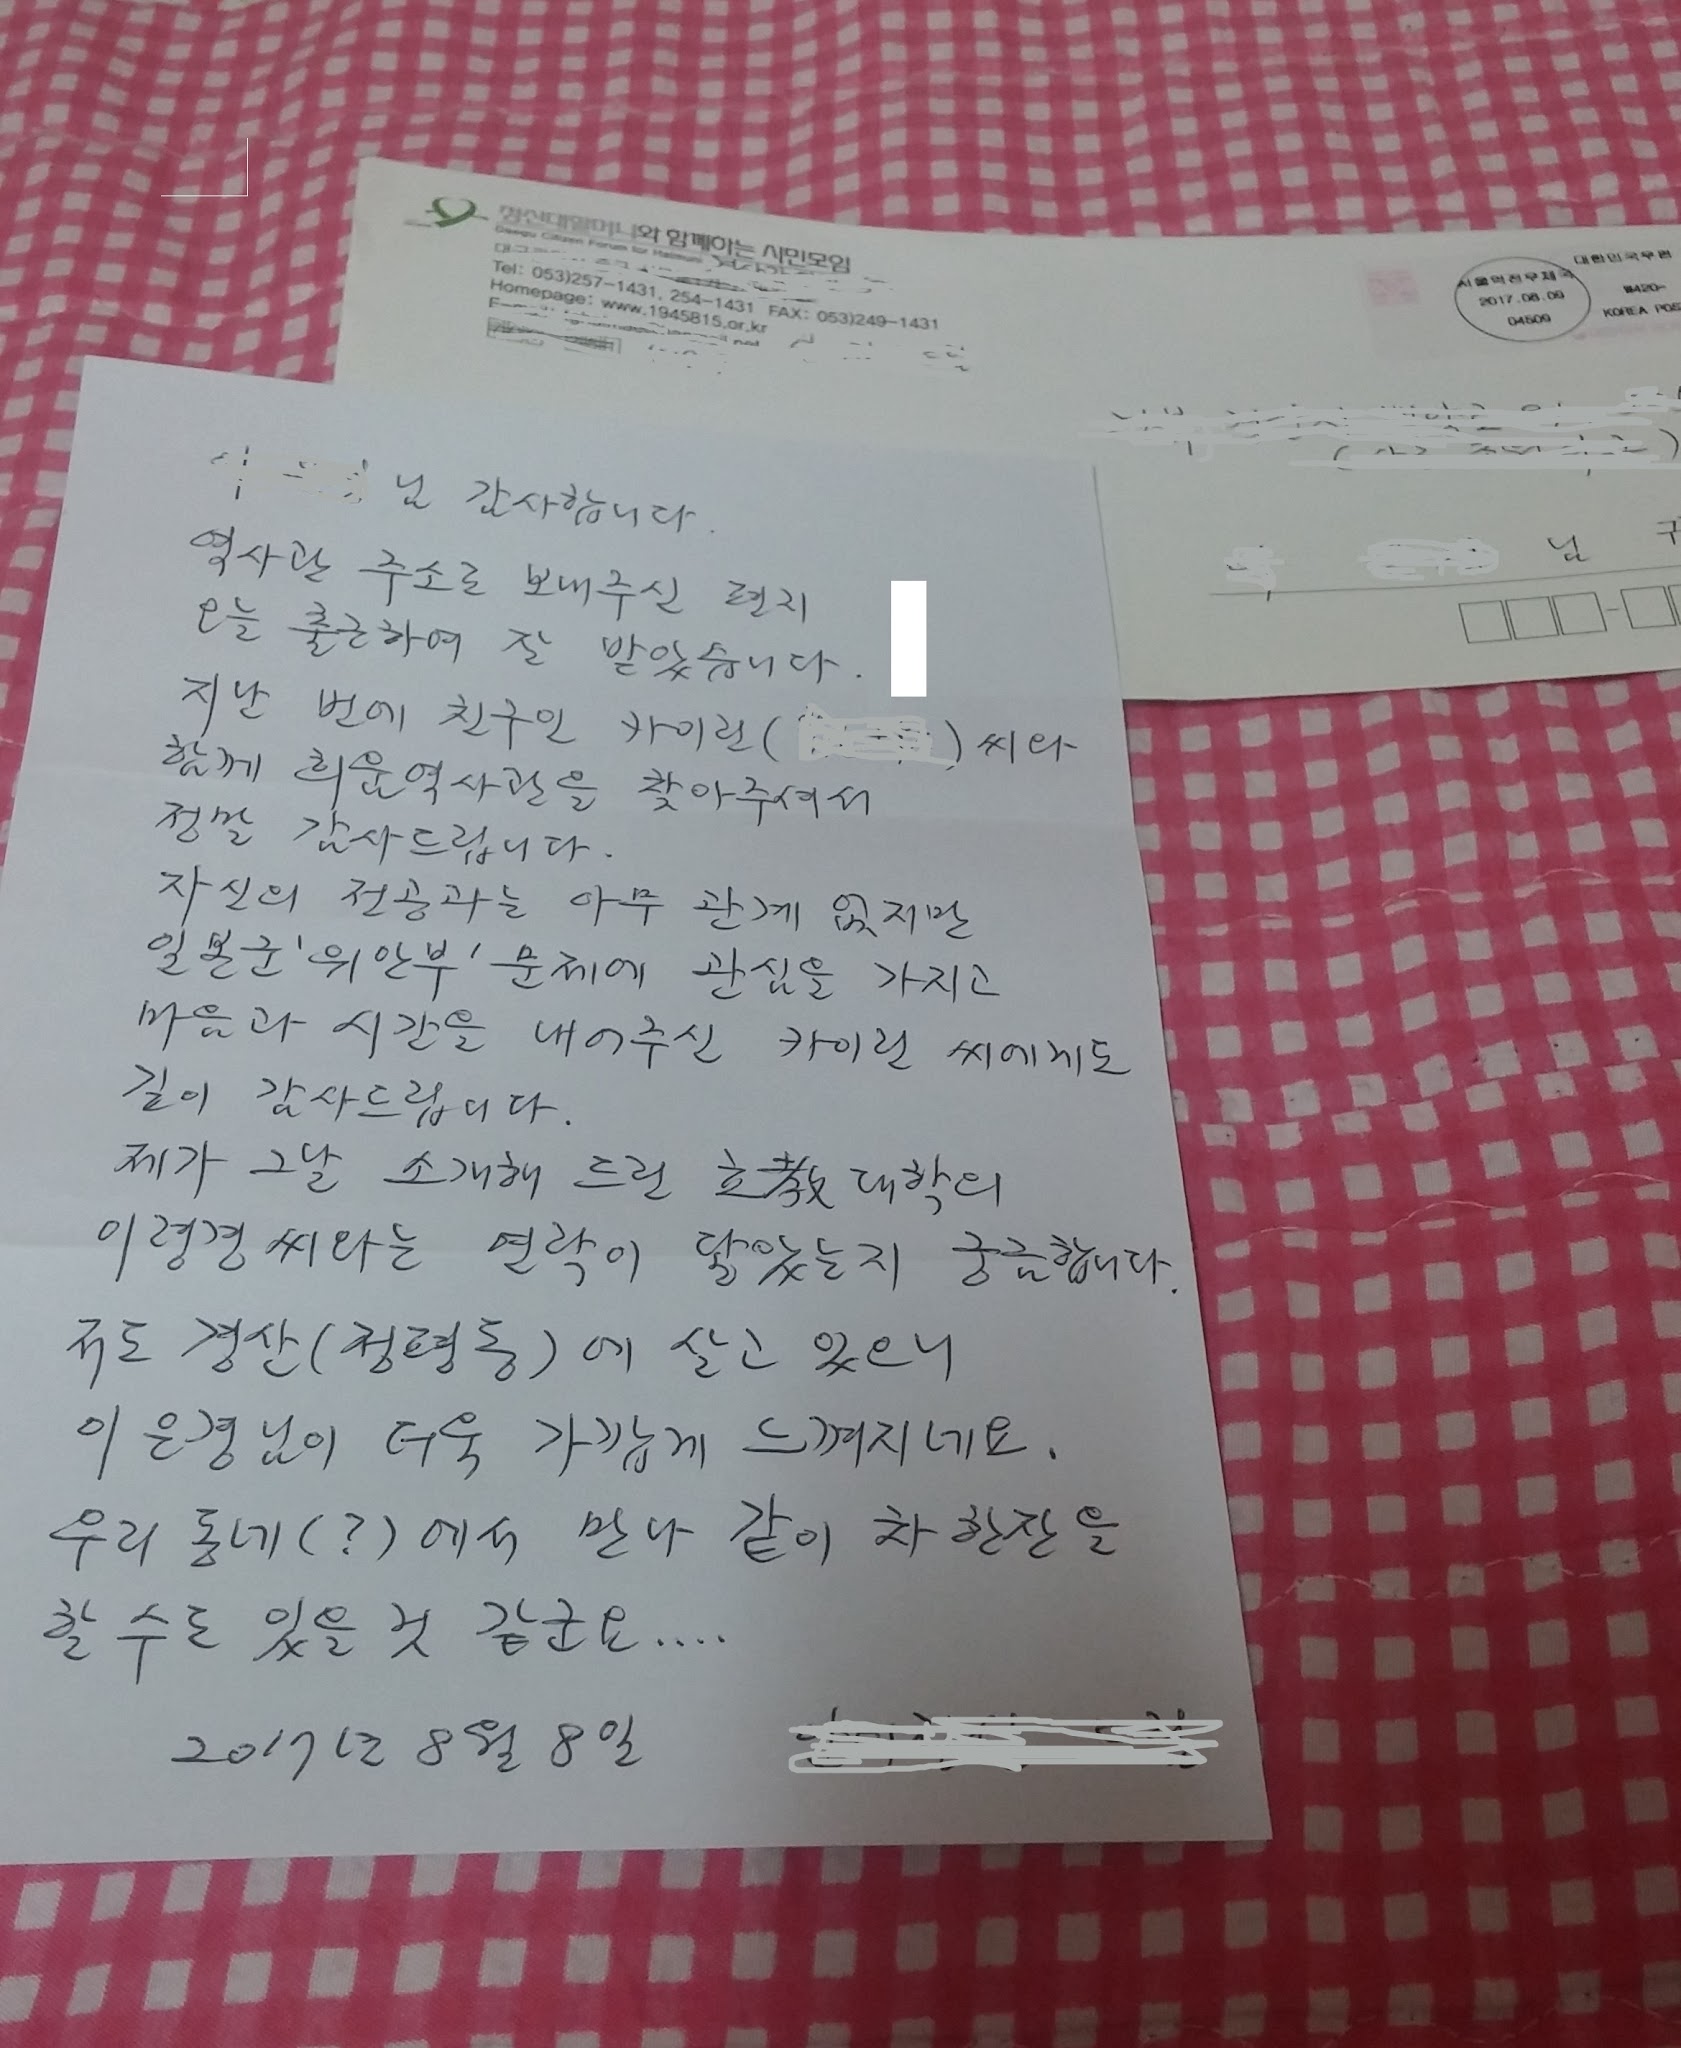 정신대할머니와 함께하는 시민모임
Daegu Citizen Forum for Halmuni
Tel: 053)257-1431, 254-1431 FAX: 053)249-1431
Homepage: www.1945815.or.kr
서울역전우체국
2017.08.09
04509
대한민국우편
₩420-
KOREA POS
님
님 감사합니다.
역사관 주소로 보내주신 편지
오늘 출근하여 잘 받았습니다.
지난 번에 친구인 카이린( )씨와
함께 희움역사관을 찾아주셔서
정말 감사드립니다.
자신의 전공과는 아무 관계 없지만
일본군'위안부' 문제에 관심을 가지고
마음과 시간을 내어주신 카이린 씨에게도
깊이 감사드립니다.
제가 그날 소개해 드린 立教대학의
이령경씨와는 연락이 닿았는지 궁금합니다.
저도 경산(정평동)에 살고 있으니
이은경님이 더욱 가깝게 느껴지네요.
우리 동네(?)에서 만나 같이 차 한잔을
할 수도 있을 것 같군요....
2017년 8월 8일